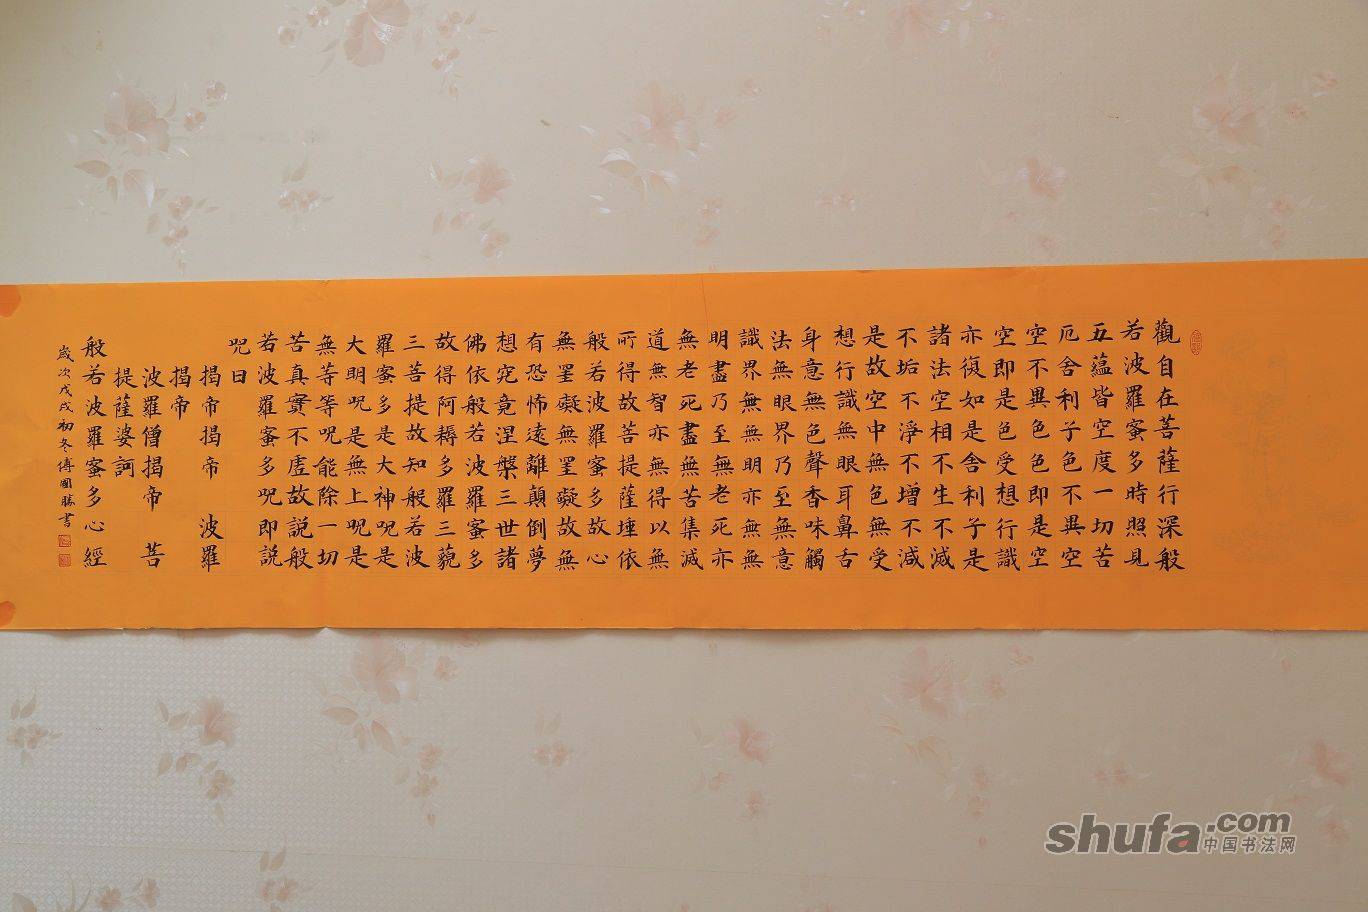 觀自在菩薩行深般
若波羅蜜多時照見
五蘊皆空度一切苦
厄舍利子色不異空
空不異色色即是空
空即是色受想行識
亦復如是舍利子是
諸法空相不生不滅
不垢不淨不增不減
是故空中無色無受
想行識無眼耳鼻舌
身意無色聲香味觸
法無眼界乃至無意
識界無無明亦無無
明盡乃至無老死亦
無老死盡無苦集滅
道無智亦無得以無
所得故菩提薩埵依
般若波羅蜜多故心
無罣礙無罣礙故無
有恐怖遠離顛倒夢
想究竟涅槃三世諸
佛依般若波羅蜜多
故得阿耨多羅三藐
三菩提故知般若波
羅蜜多是大神呪是
大明呪是無上呪是
無等等呪能除一切
苦真實不虛故説般
若波羅蜜多呪即説
呪曰
揭帝揭帝 波羅
揭帝
波羅僧揭帝 菩
提薩婆訶
般若波羅蜜多心經
歲次戊戌初冬傅國勝書
shufa.com
中国书法网